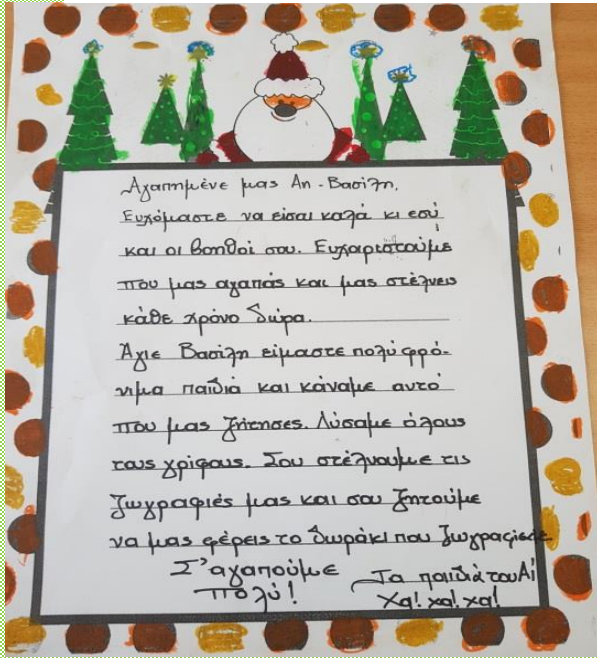 Αγαπημένε μας Αη-Βασίλη,
Ευχόμαστε να είσαι καλά κι εσύ
και οι βοηθοί σου. Ευχαριστούμε
που μας αγαπάς και μας στέλνεις
κάθε χρόνο δώρα.
Άγιε Βασίλη είμαστε πολύ φρό-
νιμα παιδιά και κάναμε αυτό
που μας ζήτησες. Λύσαμε όλους
τους γρίφους. Σου στέλνουμε τις
ζωγραφιές μας και σου ζητούμε
να μας φέρεις το δωράκι που
Σ'αγαπούμε
πολύ!
Τα παιδιά του Αϊ
Χα! χα! χα!